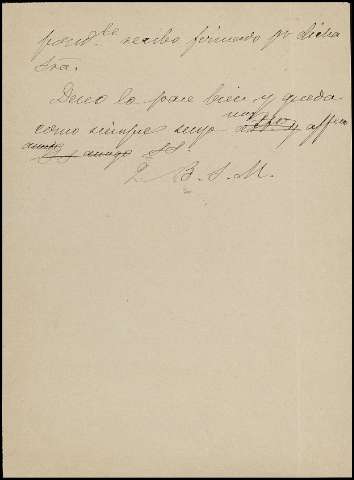 pond.te recibo firmado pr. dicha
Sra.
Deseo lo pase bien y queda
como siempre suyo muy affmo
amigo SS.
Q. B. S. M.